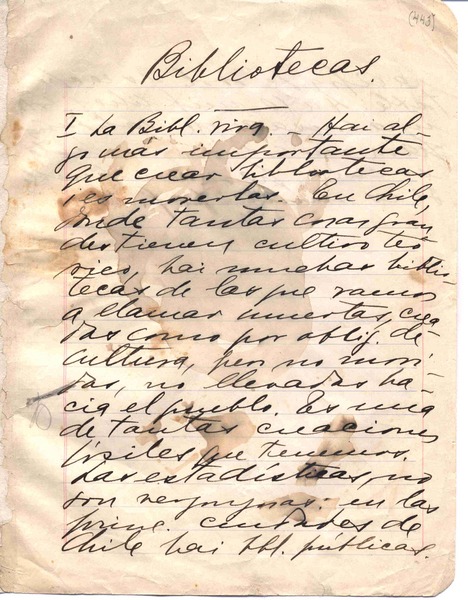 (443)
Bibliotecas.
I La Bibl. viva. - Hai al-
go más importante
que crear bibliotecas
i es moverlas. En Chile,
donde tantas cosas gran
des tienen cultivo teó
rico, hai muchas biblio
tecas de las que vamos
a llamar muertas, crea
das como por oblig. de
cultura, pero no movi-
das, no llevadas ha-
cia el pueblo. Es una
de tantas creaciones
que tenemos.
Las estadísticas, no
son vergonzosas: en las
princ. ciudades de
Chile hai bbl. públicas.